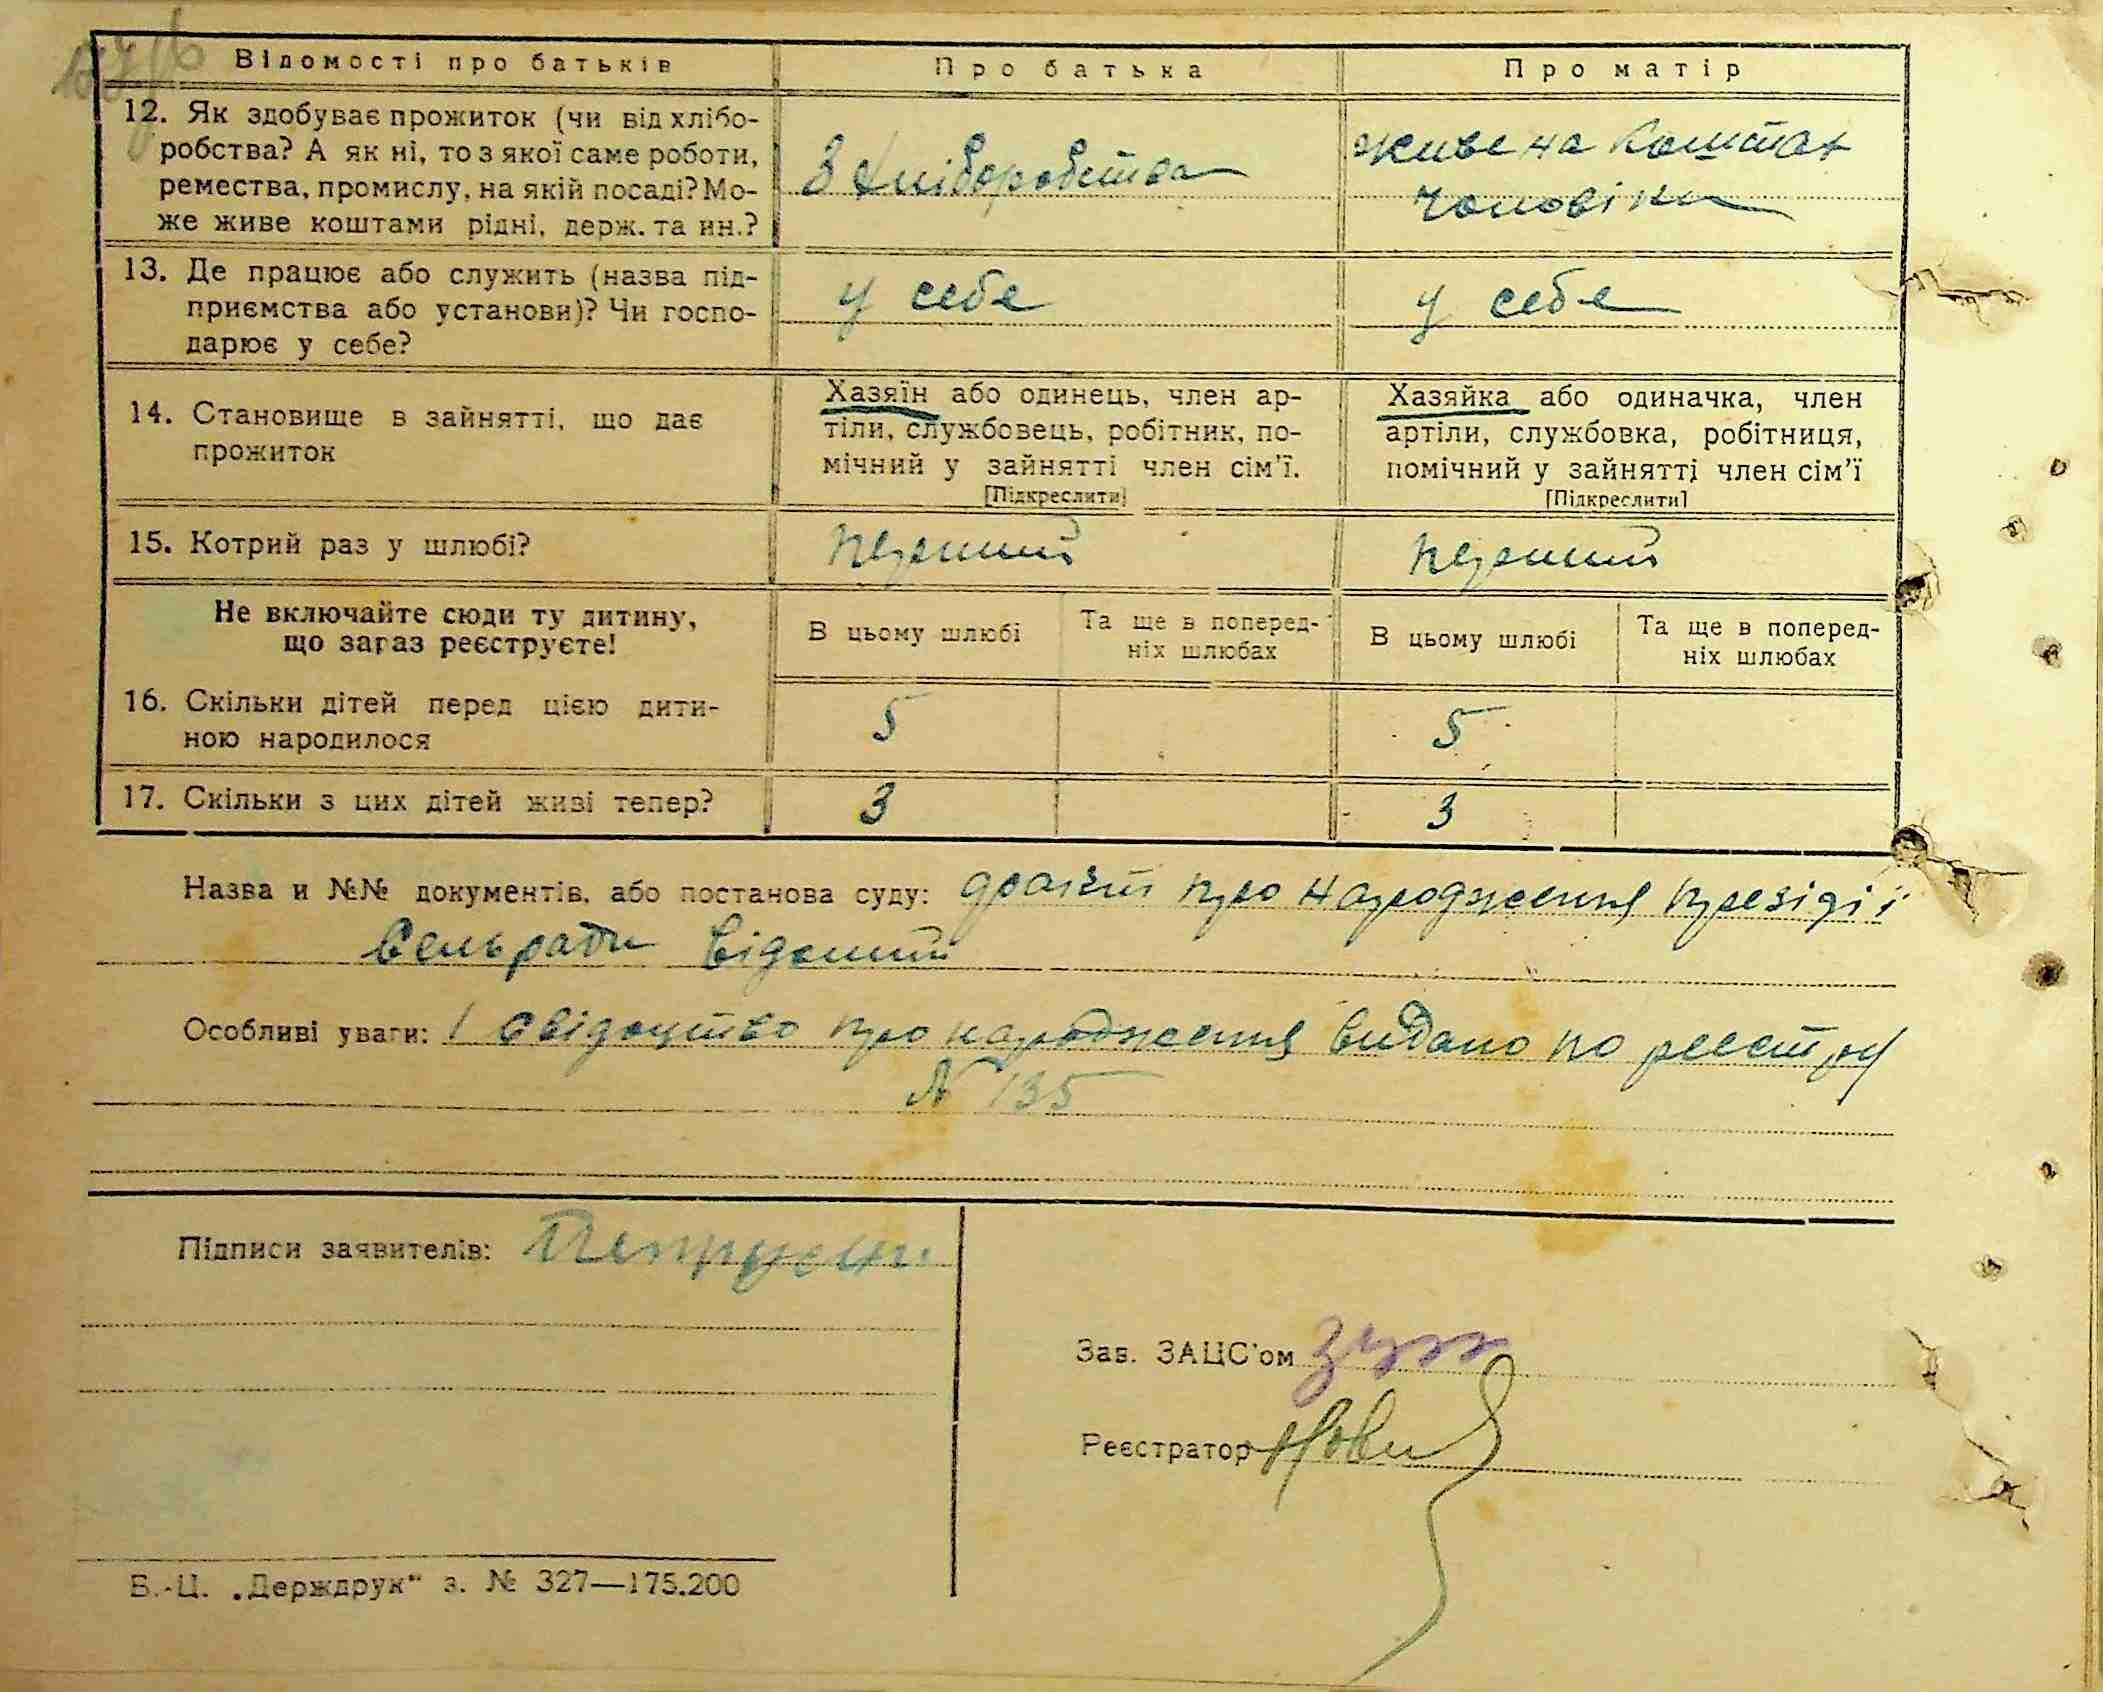 Відомості про батьків
Про батька
Про матір
12. Як здобуває прожиток (чи від хлібо-
робства? А як ні, то з якої саме роботи,
ремества, промислу, на якій посаді? Мо-
же живе коштами рідні, держ. та ин.?
З хліборобства
живе на коштах
чоловіка
13. Де працює або служить (назва під-
приємства або установи)? Чи госпо-
дарює у себе?
у себе
у себе
14. Становище в зайнятті, що дає
прожиток
Хазяїн або одинець, член ар-
тіли, службовець, робітник, по-
мічний у зайнятті член сім'ї.
[Підкреслити]
Хазяйка або одиначка, член
артіли, службовка, робітниця,
помічний у зайнятті член сім'ї
[Підкреслити]
15. Котрий раз у шлюбі?
перший
перший
Не включайте сюди ту дитину,
що зараз реєструєте!
В цьому шлюбі
Та ще в поперед-
ніх шлюбах
В цьому шлюбі
Та ще в поперед-
ніх шлюбах
16. Скільки дітей перед цією дити-
ною народилося
5
5
17. Скільки з цих дітей живі тепер?
3
3
Назва и №№ документів, або постанова суду: про народження президії
Сельради відомий
Особливі уваги: 1 свідоцтво про народження видано по реєстру
№ 135
Підписи заявителів:
Зав. ЗАЦС'ом
Реєстратор
Б.-Ц. „Держдрук" з. № 327—175.200